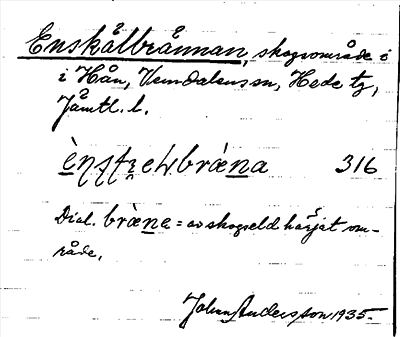 Enskålbrännan, skogsområde i
i Hån, Vemdalens sn, Hede tg,
Jämtl. l.
316
Dial. bräna = av skogseld härjat om-
råde.
Johan Andersson 1935.